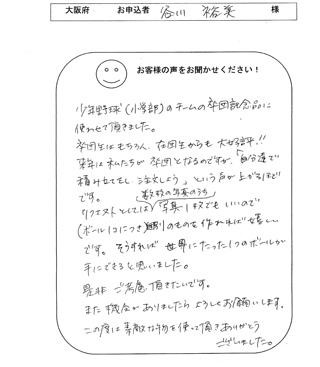 大阪府 お申込者 谷川 裕美 様
お客様の声をお聞かせください！
少年野球(小学部)のチームの卒団記念品に
使わせて頂きました。
卒団生はもちろん、在団生からも大好評!!
来年は私たちが卒団となるのですが、「自分達で
積み立てをし、注文しよう」という声が上がるほど
です。
数枚の写真のうち
リクエストとしては、写真1枚でもいいので
(ボール1コにつき)個々のものを作れれば嬉しい
です。そうすれば世界にたった1つのボールが
手にできると思いました。
是非ご考慮頂きたいです。
また機会がありましたらよろしくお願いします。
この度は素敵な
を使って頂きありがとう
ございました。